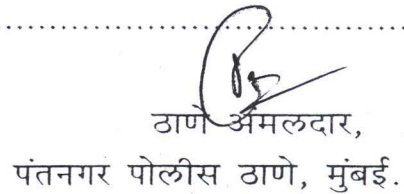 ठाणे अंमलदार,
पंतनगर पोलीस ठाणे, मुंबई.